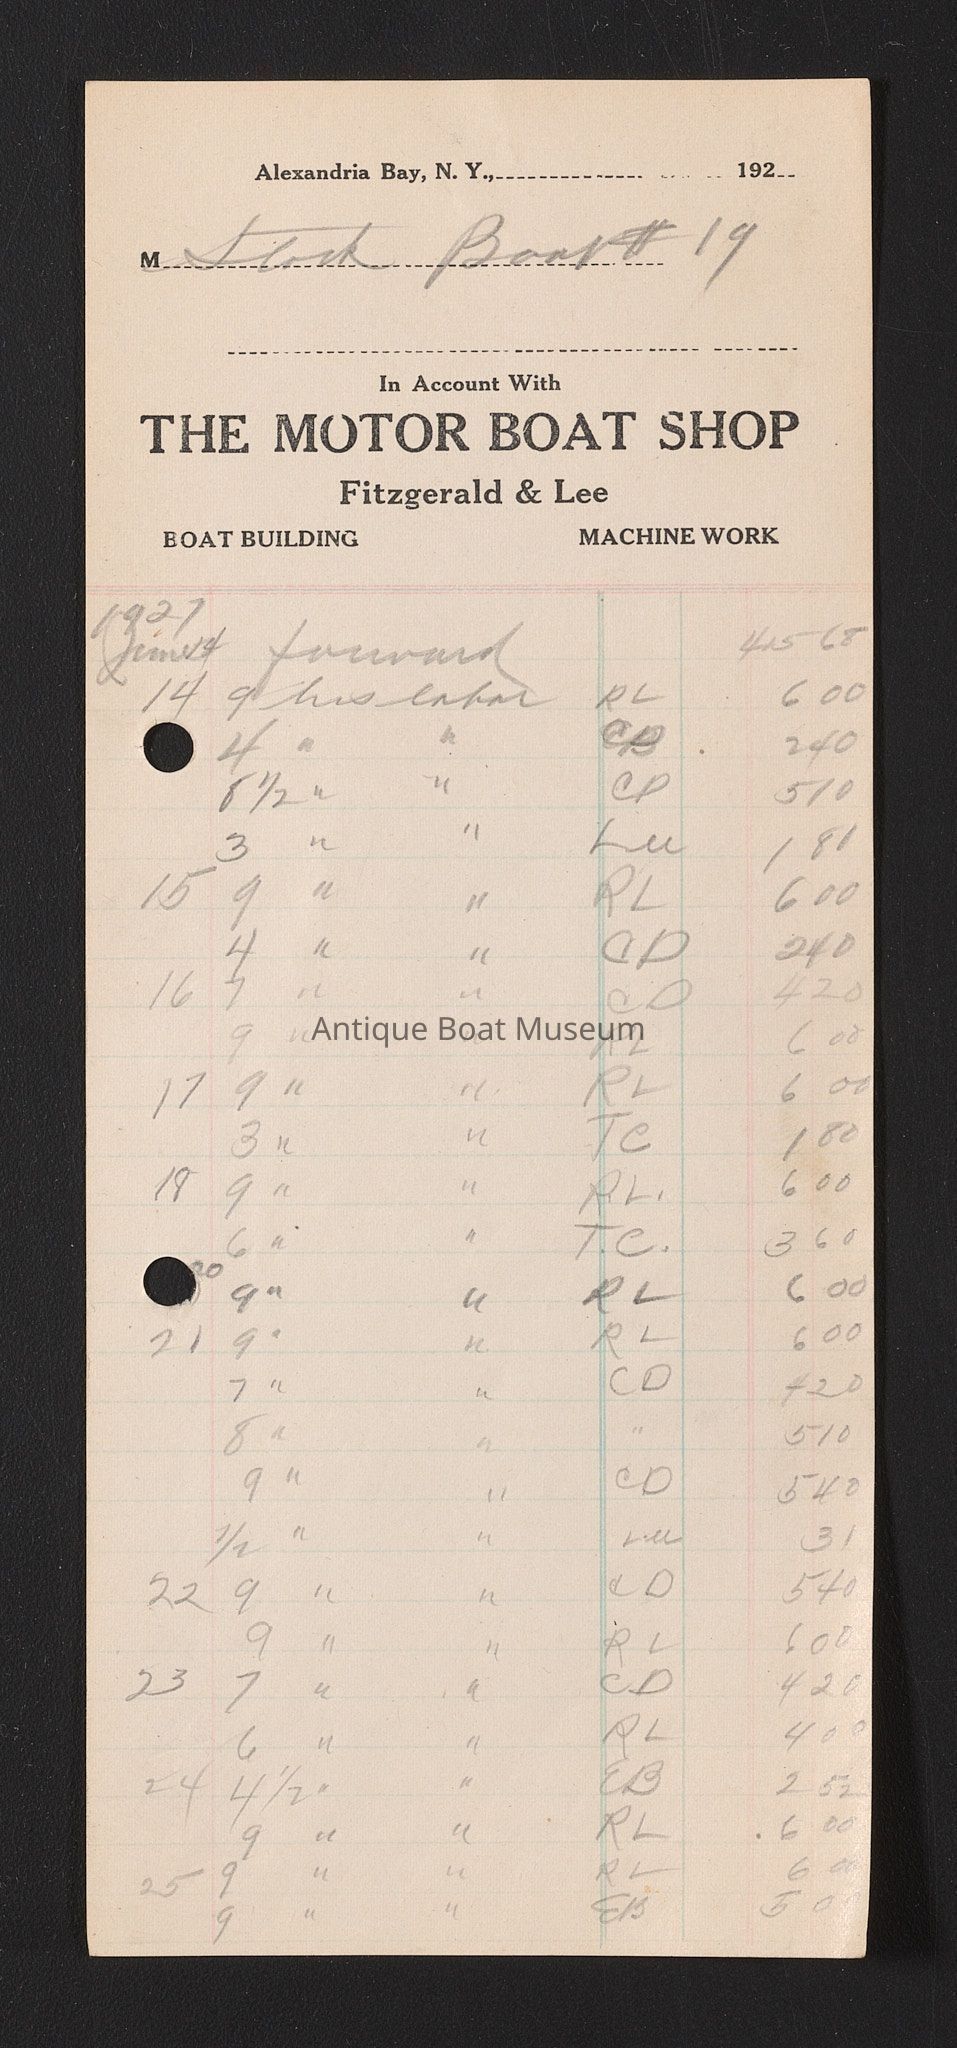 Alexandria Bay, N. Y., 192
M Stock Boat # 19
In Account With
THE MOTOR BOAT SHOP
Fitzgerald & Lee
BOAT BUILDING MACHINE WORK
1927
June forward 68
14 9 hrs labor RL 6 00
4 " " CD 2 40
8 1/2 " " CD 5 10
3 " " Lee 1 81
15 9 " " RL 6 00
4 " " CD 2 40
16 7 " " CD 4 20
Antique Boat Museum
9 " " RL 6 00
17 9 " " RL 6 00
3 " " TC 1 80
18 9 " " RL. 6 00
6 " " T.C. 3 60
20 9 " " RL 6 00
21 9 " " RL 6 00
7 " " CD 4 20
8 " " " 5 10
9 " " CD 5 40
1/2 " " Lee 31
22 9 " " CD 5 40
9 " " RL 6 00
23 7 " " CD 4 20
6 " " RL 4 00
24 4 1/2 " " EB 2 52
9 " " RL 6 00
25 9 " " RL 6 00
9 " " EB 5 0